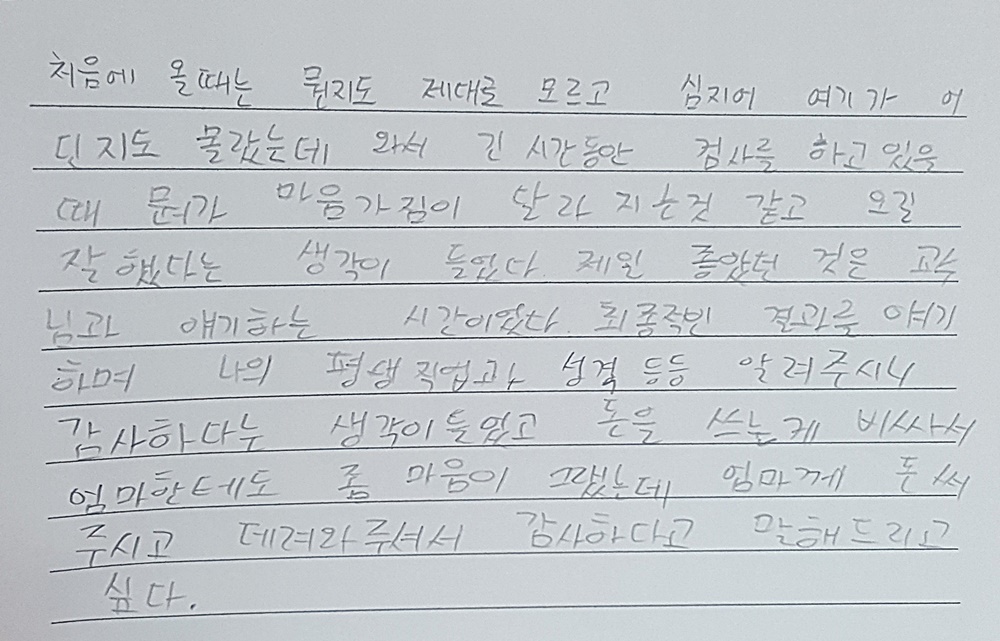 처음에 올때는 뭔지도 제대로 모르고 심지어 여기가 어
딘지도 몰랐는데 와서 긴 시간동안 검사를 하고있을
때 뭔가 마음가짐이 달라지는것 같고 오길
잘했다는 생각이 들었다. 제일 좋았던 것은 교수
님과 얘기하는 시간이었다. 최종적인 결과를 얘기
하며 나의 평생직업과 성격 등등 알려주시니
감사하다는 생각이들었고 돈을 쓰는게 비싸서
엄마한테도 좀 마음이 그랬는데 엄마께 돈 써
주시고 데려와주셔서 감사하다고 말해드리고
싶다.